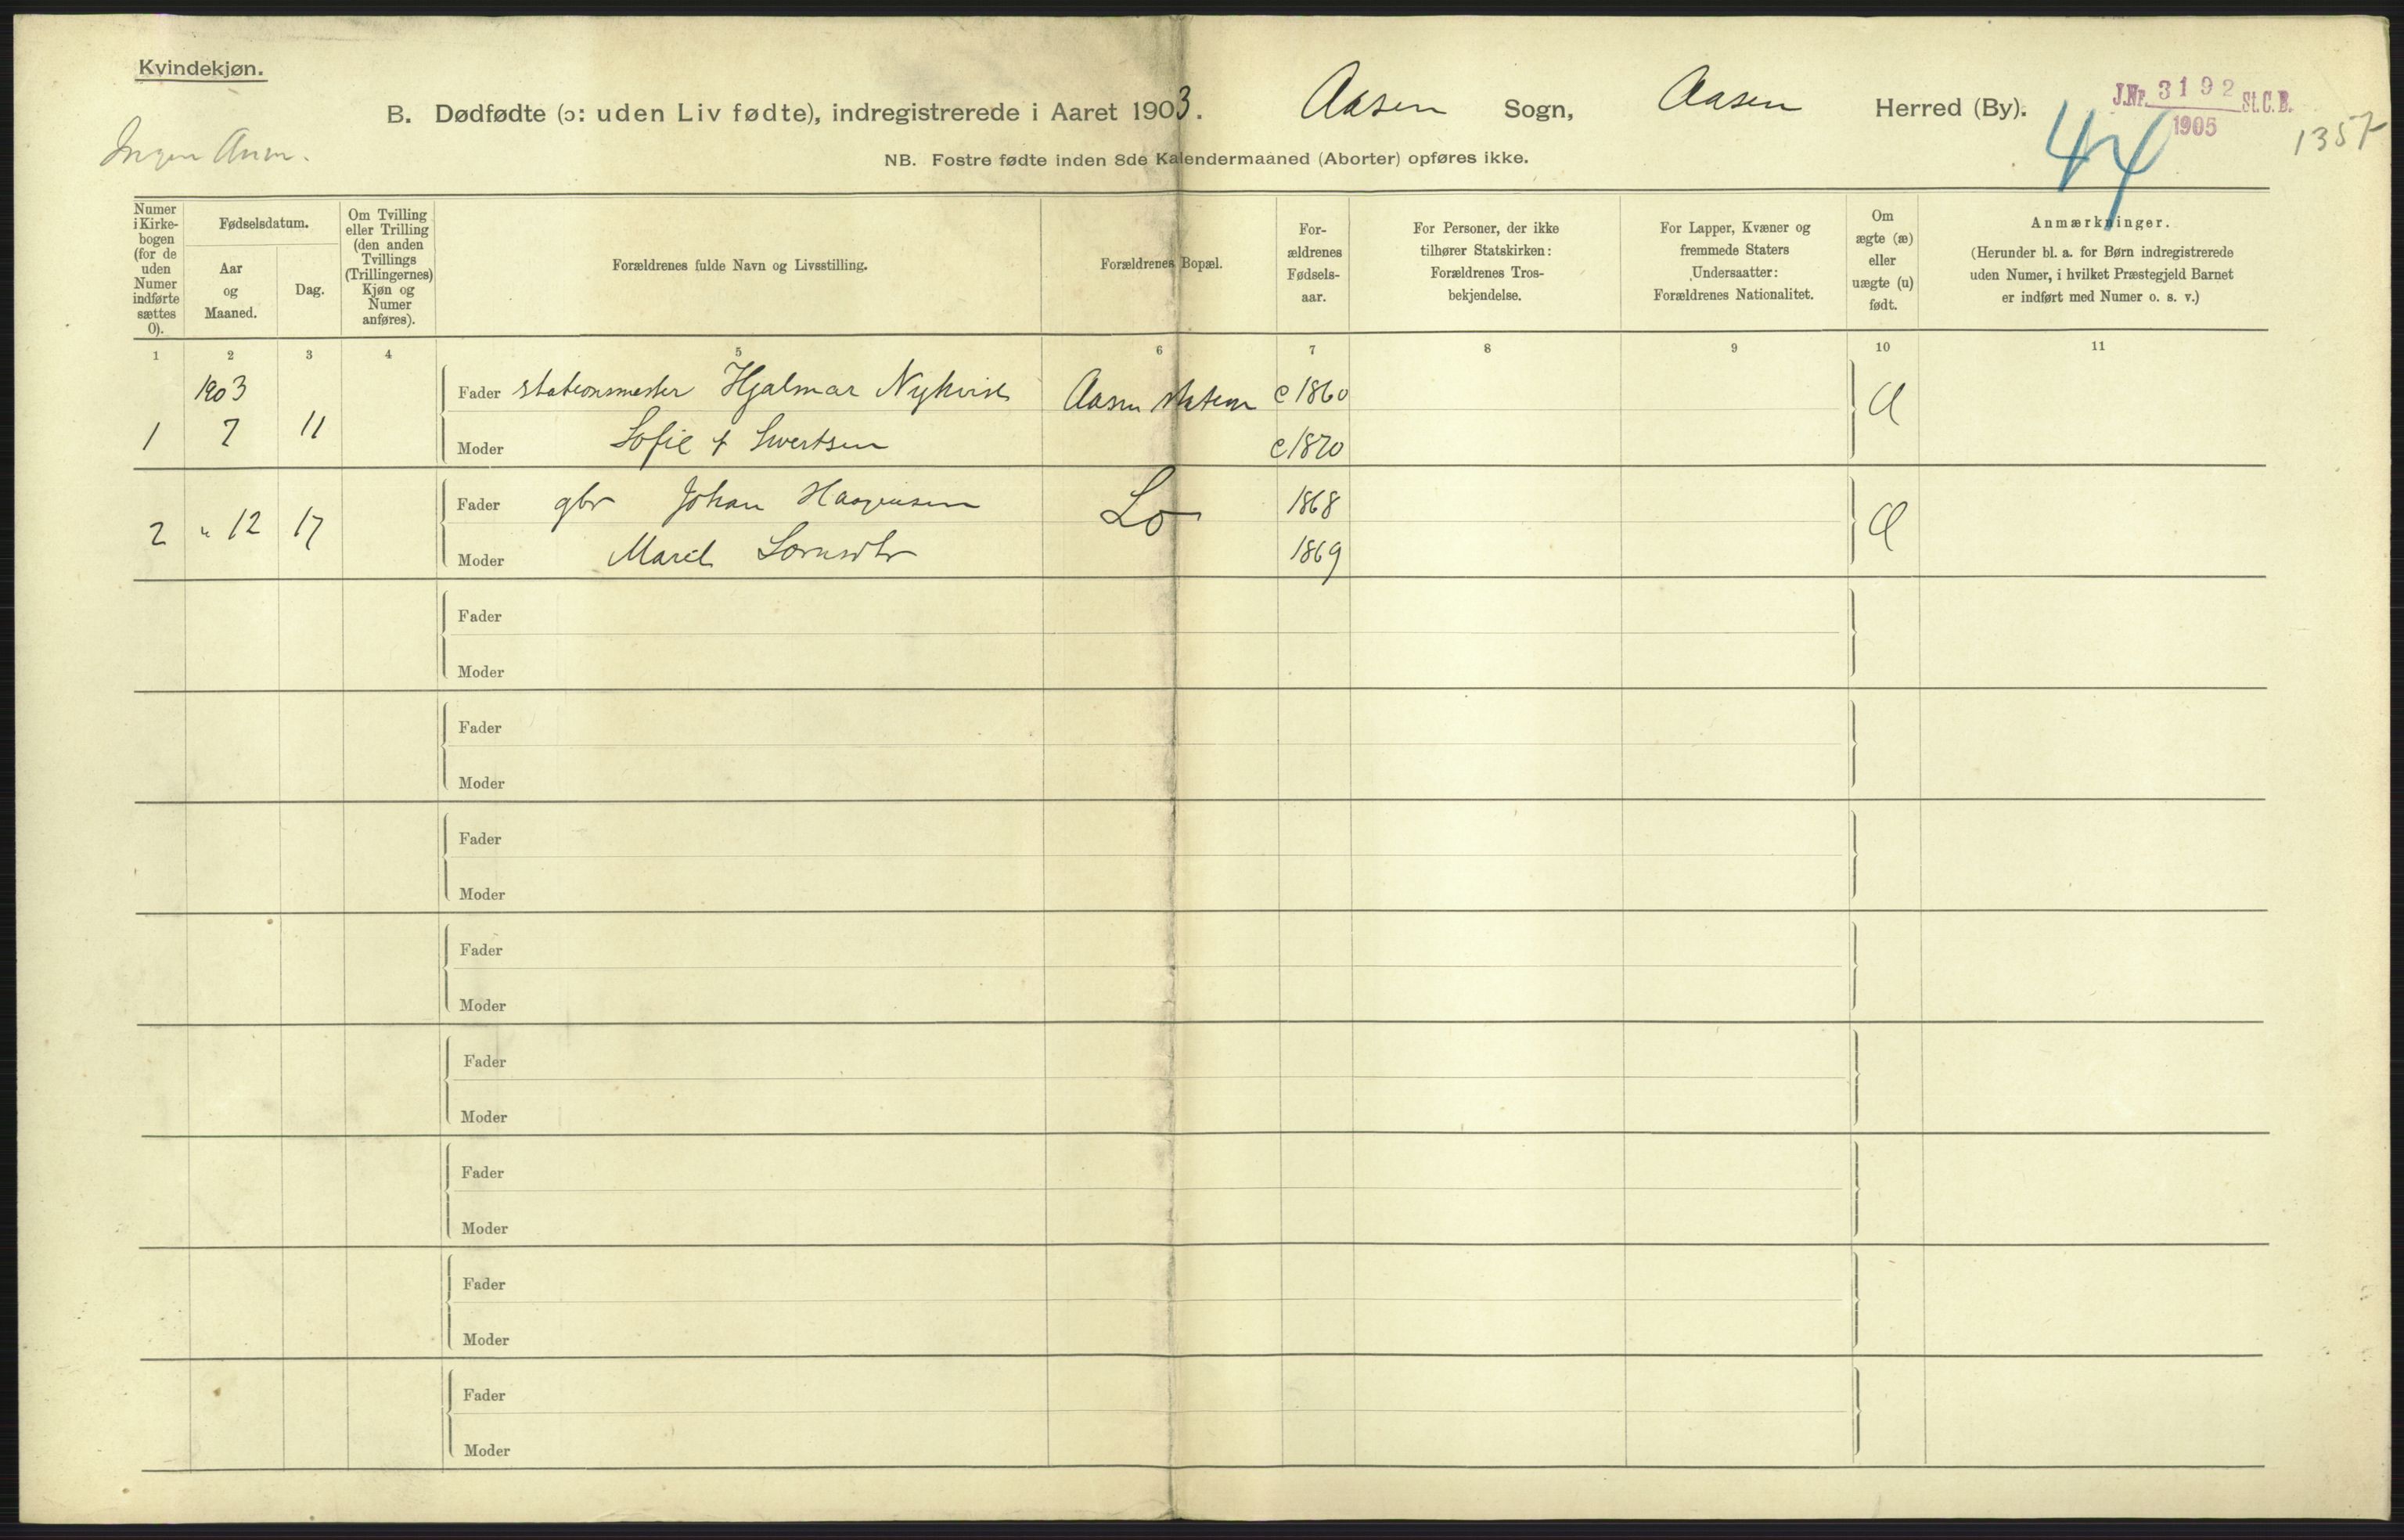 Kvindekjøn.
B. Dødfødte (ɔ: uden Liv fødte), indregistrerede i Aaret 1903. Aasen Sogn, Aasen Herred (By).
J.Nr. 3192 St.C.B.
1905
44
135
Ingen Anm.
NB. Fostre fødte inden 8de Kalendermaaned (Aborter) opføres ikke.
Numer
i Kirke-
bogen
(for de
uden
Numer
indførte
sættes
0).
Fødselsdatum.
Aar
og
Maaned.
Dag.
Om Tvilling
eller Trilling
(den anden
Tvillings
(Trillingernes)
Kjøn og
Numer
anføres).
Forældrenes fulde Navn og Livsstilling.
Forældrenes Bopæl.
For-
ældrenes
Fødsels-
aar.
For Personer, der ikke
tilhører Statskirken:
Forældrenes Tros-
bekjendelse.
For Lapper, Kvæner og
fremmede Staters
Undersaatter:
Forældrenes Nationalitet.
Om
ægte (æ)
eller
uægte (u)
født.
Anmærkninger.
(Herunder bl. a. for Børn indregistrerede
uden Numer, i hvilket Præstegjeld Barnet
er indført med Numer o. s. v.)
1 2 3 4 5 6 7 8 9 10 11
1903
Fader stationsmester Hjalmar Nykvist Aasen station c 1860
1 7 11
Moder Sofie f Sivertsen c 1870
Fader gbr Johan Haagensen Lo 1868
2 " 12 17
Moder Maret 1869
Fader
Moder
Fader
Moder
Fader
Moder
Fader
Moder
Fader
Moder
Fader
Moder
Fader
Moder
Fader
Moder